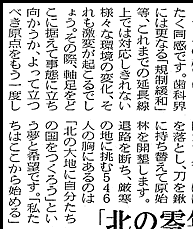 たく同感です。歯科界
には更なる「規制緩和」
等、これまでの延長線
上では対応しきれない
様々な環境の変化、そ
れも激変が起こるでし
ょう。その際、軸足をど
こに据えて事態に立ち
向かうか、よって立つ
べき原点をもう一度し
を落とし、刀を鍬
に持ち替えて原始
林を開墾します。
退路を断ち、厳寒
の地に挑む546
人の胸にあるのは
「北の大地に自分たち
の国をつくろう」とい
う夢と希望です。「私た
ちはここから始める
「北の零